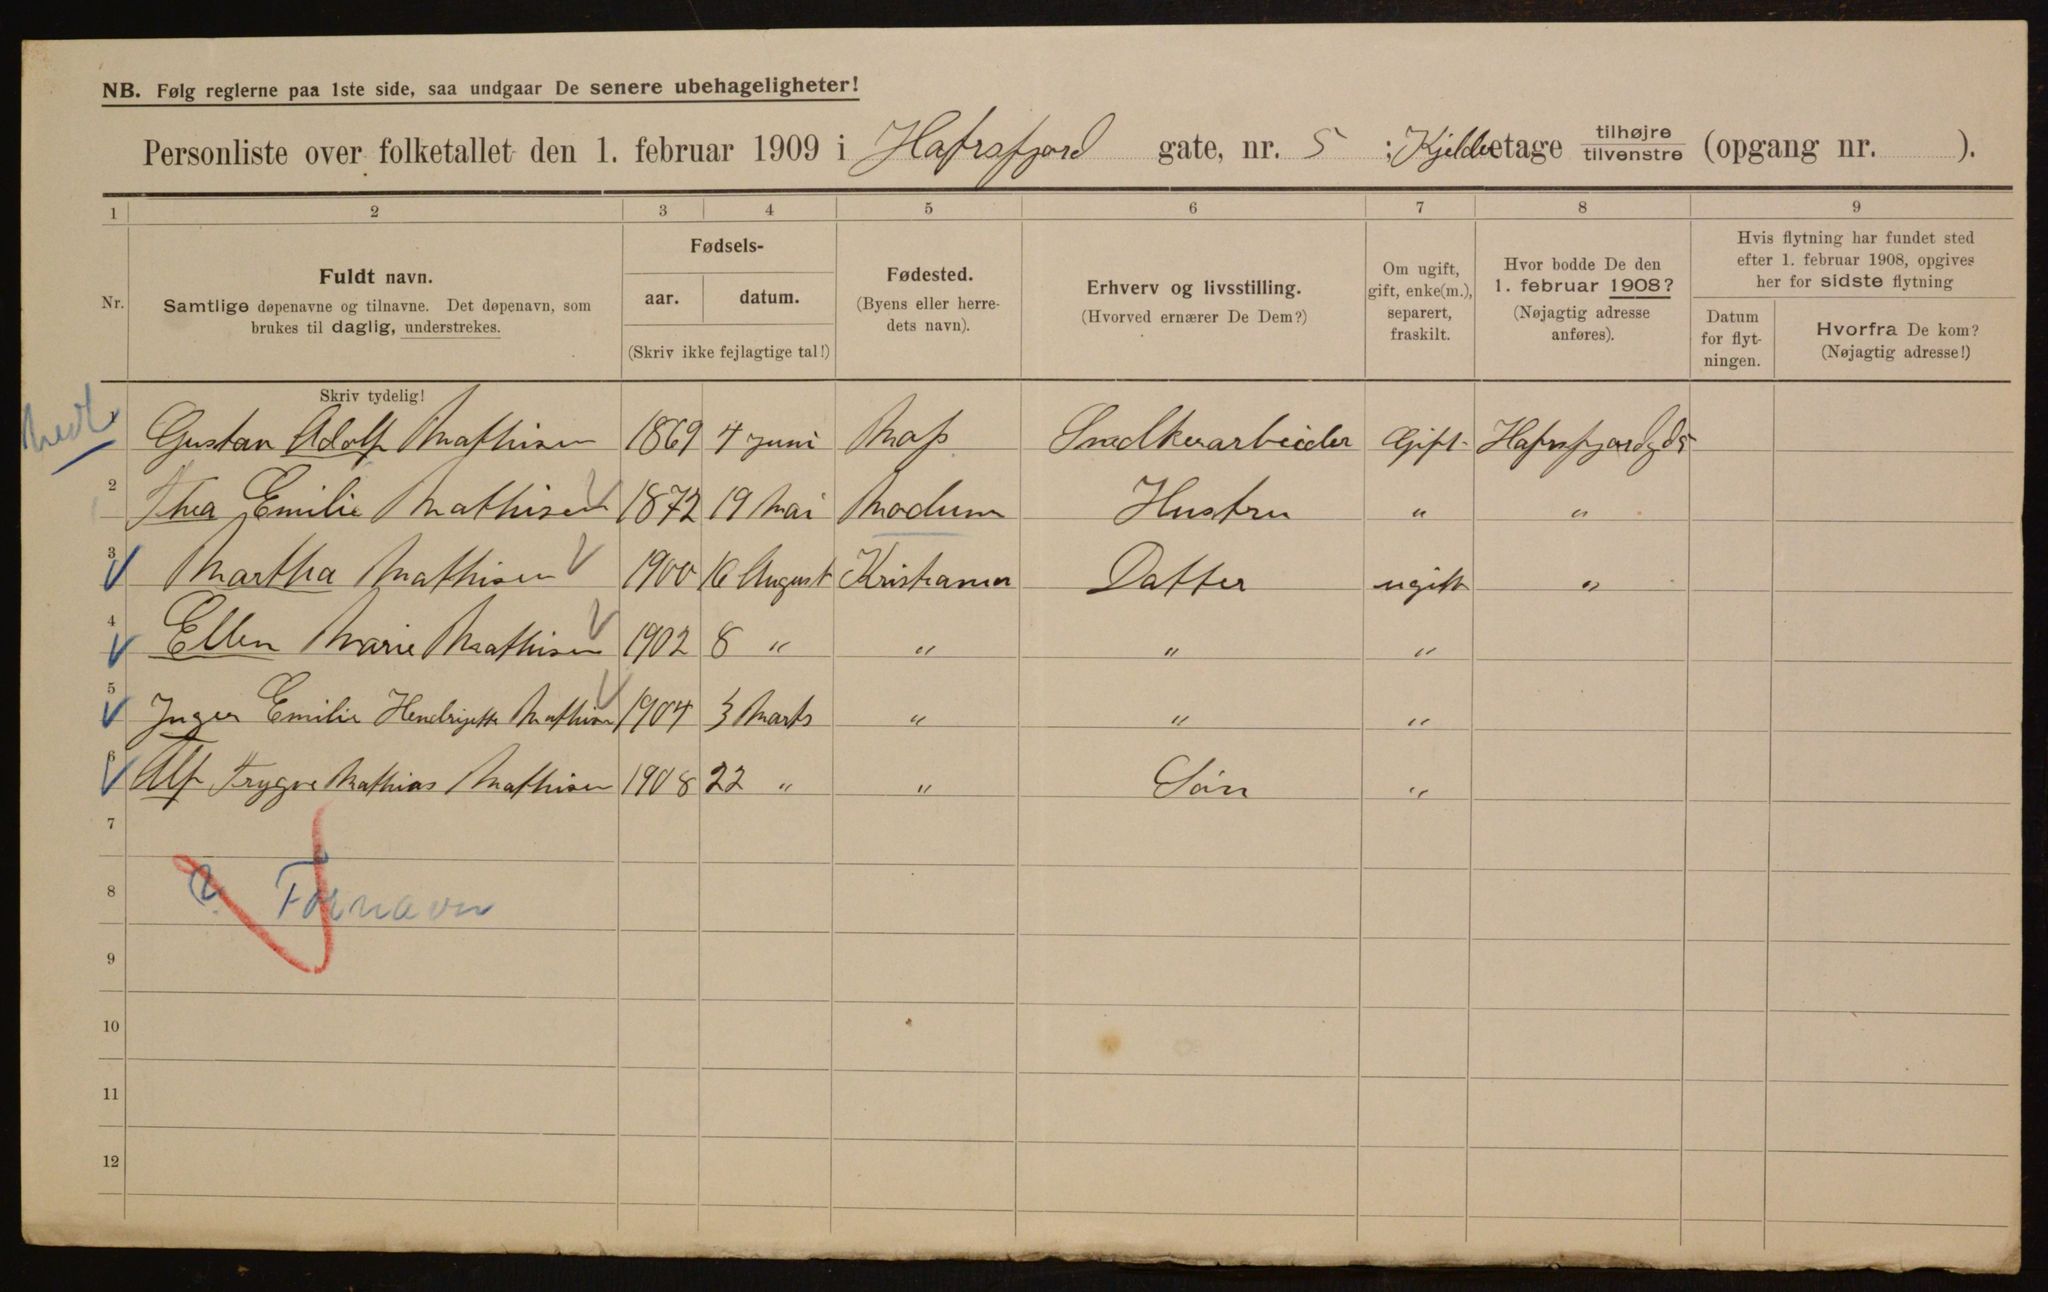 NB. Følg reglerne paa 1ste side, saa undgaar De senere ubehageligheter!
Personliste over folketallet den 1. februar 1909 i Hafrsfjord gate, nr. 5 ; Kjelder etage tilhøjre / tilvenstre (opgang nr. ).
1 2 3 4 5 6 7 8 9
Nr.
Fuldt navn.
Samtlige døpenavne og tilnavne. Det døpenavn, som
brukes til daglig, understrekes.
Skriv tydelig!
Fødsels-
aar. datum.
(Skriv ikke fejlagtige tal!)
Fødested.
(Byens eller herre-
dets navn).
Erhverv og livsstilling.
(Hvorved ernærer De Dem?)
Om ugift,
gift, enke(m.),
separert,
fraskilt.
Hvor bodde De den
1. februar 1908?
(Nøjagtig adresse
anføres).
Hvis flytning har fundet sted
efter 1. februar 1908, opgives
her for sidste flytning
Datum
for flyt-
ningen.
Hvorfra De kom?
(Nøjagtig adresse!)
1 Gustav Adolf Mathisen 1869 4 juni Mos Snedkerarbeider Gift Hafrsfjordgd 5
2 Thea Emilie Mathisen 1872 19 Mai Modum Hustru " "
3 Martha Mathisen 1900 16 August Kristiania Datter ugift "
4 Ellen Marie Mathisen 1902 8 " " " "
5 Inger Emilie Hendrijette Mathisen 1904 3 Marts " " "
6 Alf Trygve Mathias Mathisen 1908 22 " " Søn "
7
8 Fornavn
9
10
11
12